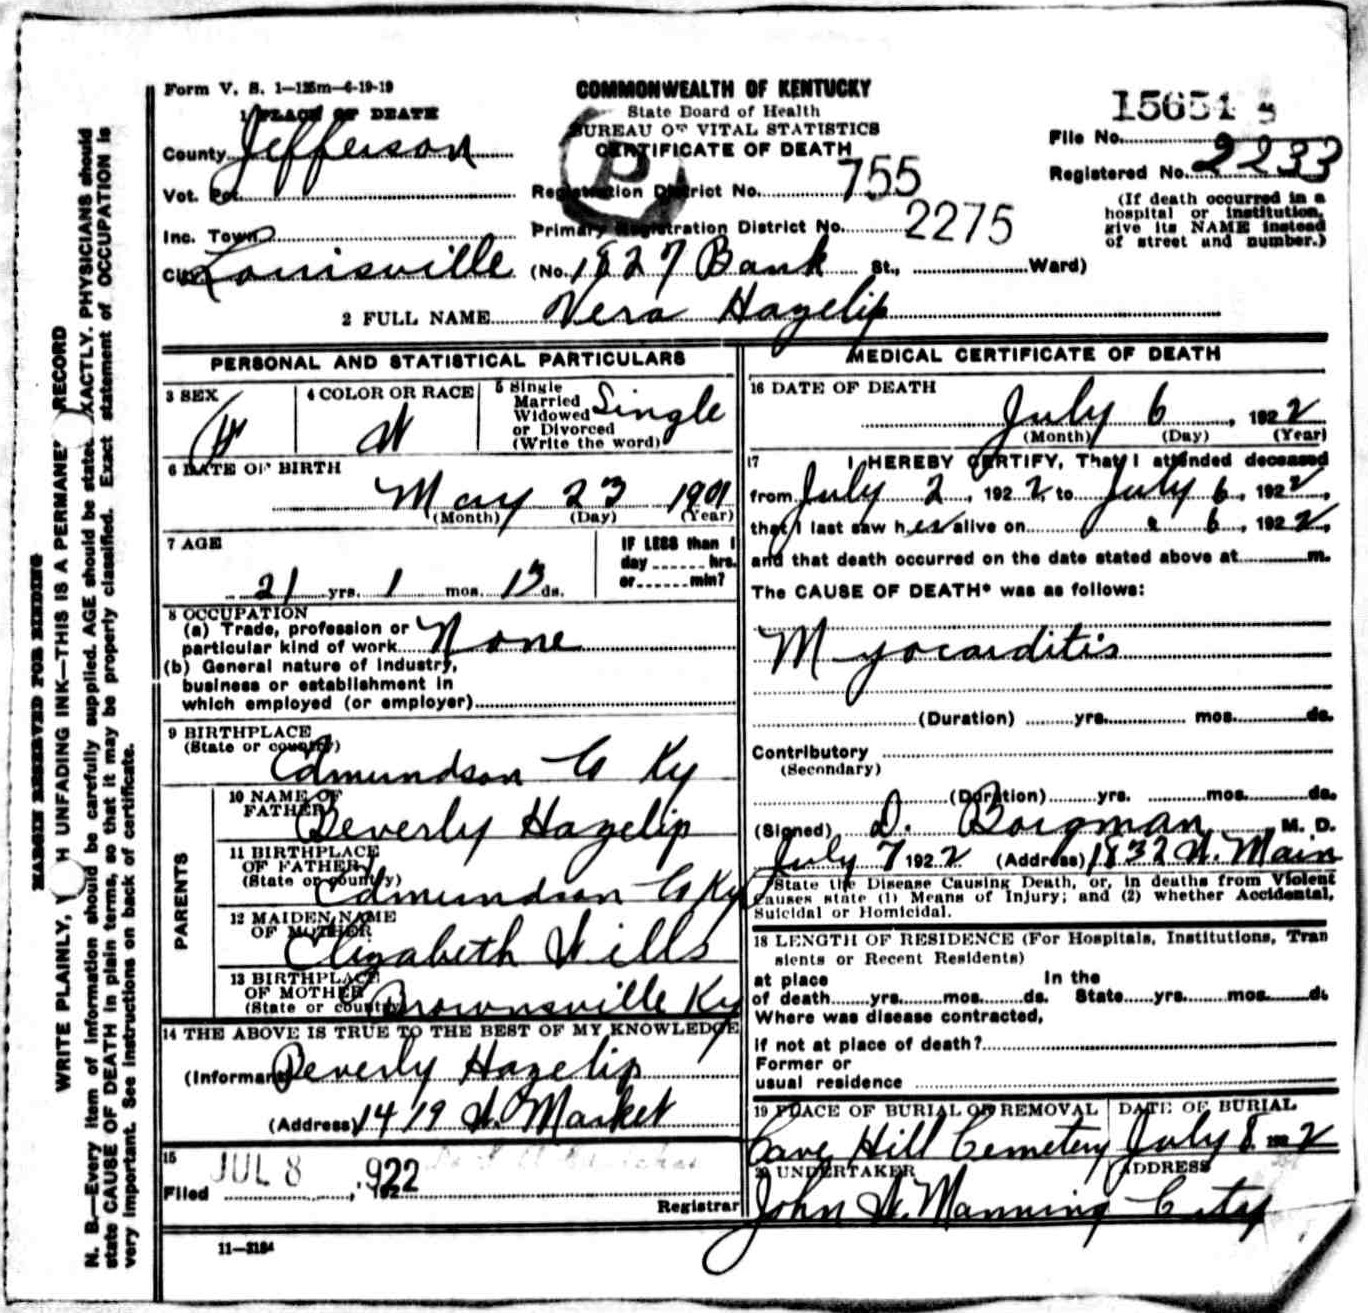 Form V. S. 1—125m—6-19-19
COMMONWEALTH OF KENTUCKY
State Board of Health
BUREAU OF VITAL STATISTICS
CERTIFICATE OF DEATH
15651
File No.
Registered No. 2233
(If death occurred in a
hospital or institution,
give its NAME instead
of street and number.)
1 PLACE OF DEATH
County Jefferson
Vot. Pct.
Inc. Town
City Louisville (No. 1827 Bank St., Ward)
Registration District No. 755
Primary Registration District No. 2275
2 FULL NAME Vera Hazelip
PERSONAL AND STATISTICAL PARTICULARS
3 SEX F
4 COLOR OR RACE W
5 Single
Married
Widowed
or Divorced
(Write the word) Single
6 DATE OF BIRTH
May 23 1901
(Month) (Day) (Year)
7 AGE
21 yrs. 1 mos. 13 ds.
IF LESS than 1
day ...... hrs.
or ...... min?
8 OCCUPATION
(a) Trade, profession or
particular kind of work None
(b) General nature of industry,
business or establishment in
which employed (or employer)
9 BIRTHPLACE
(State or country)
Edmundson Co Ky
PARENTS
10 NAME OF
FATHER Beverly Hazelip
11 BIRTHPLACE
OF FATHER
(State or country) Edmundson Co Ky
12 MAIDEN NAME
OF MOTHER Elizabeth Wills
13 BIRTHPLACE
OF MOTHER
(State or country) Brownsville Ky
14 THE ABOVE IS TRUE TO THE BEST OF MY KNOWLEDGE
(Informant) Beverly Hazelip
(Address) 1419 W. Market
15
Filed JUL 8, 1922
Registrar
11—3184
MEDICAL CERTIFICATE OF DEATH
16 DATE OF DEATH
July 6, 1922
(Month) (Day) (Year)
17 I HEREBY CERTIFY, That I attended deceased
from July 2, 1922 to July 6, 1922,
that I last saw her alive on " 6, 1922,
and that death occurred on the date stated above at m.
The CAUSE OF DEATH* was as follows:
Myocarditis
(Duration) yrs. mos. ds.
Contributory
(Secondary)
(Duration) yrs. mos. ds.
(Signed) D. Borgman, M. D.
July 7 1922 (Address) 1832 W. Main
*State the Disease Causing Death, or, in deaths from Violent
Causes state (1) Means of Injury; and (2) whether Accidental,
Suicidal or Homicidal.
18 LENGTH OF RESIDENCE (For Hospitals, Institutions, Tran
sients or Recent Residents)
at place In the
of death yrs. mos. ds. State yrs. mos. ds
Where was disease contracted,
if not at place of death?
Former or
usual residence
19 PLACE OF BURIAL OR REMOVAL DATE OF BURIAL
Cave Hill Cemetery July 8 1922
20 UNDERTAKER ADDRESS
John W. Manning City
MARGIN RESERVED FOR BINDING
WRITE PLAINLY, H UNFADING INK—THIS IS A PERMANE RECORD
N. B.—Every item of information should be carefully supplied. AGE should be stated EXACTLY. PHYSICIANS should
state CAUSE OF DEATH in plain terms, so that it may be properly classified. Exact statement of OCCUPATION is
very important. See instructions on back of certificate.